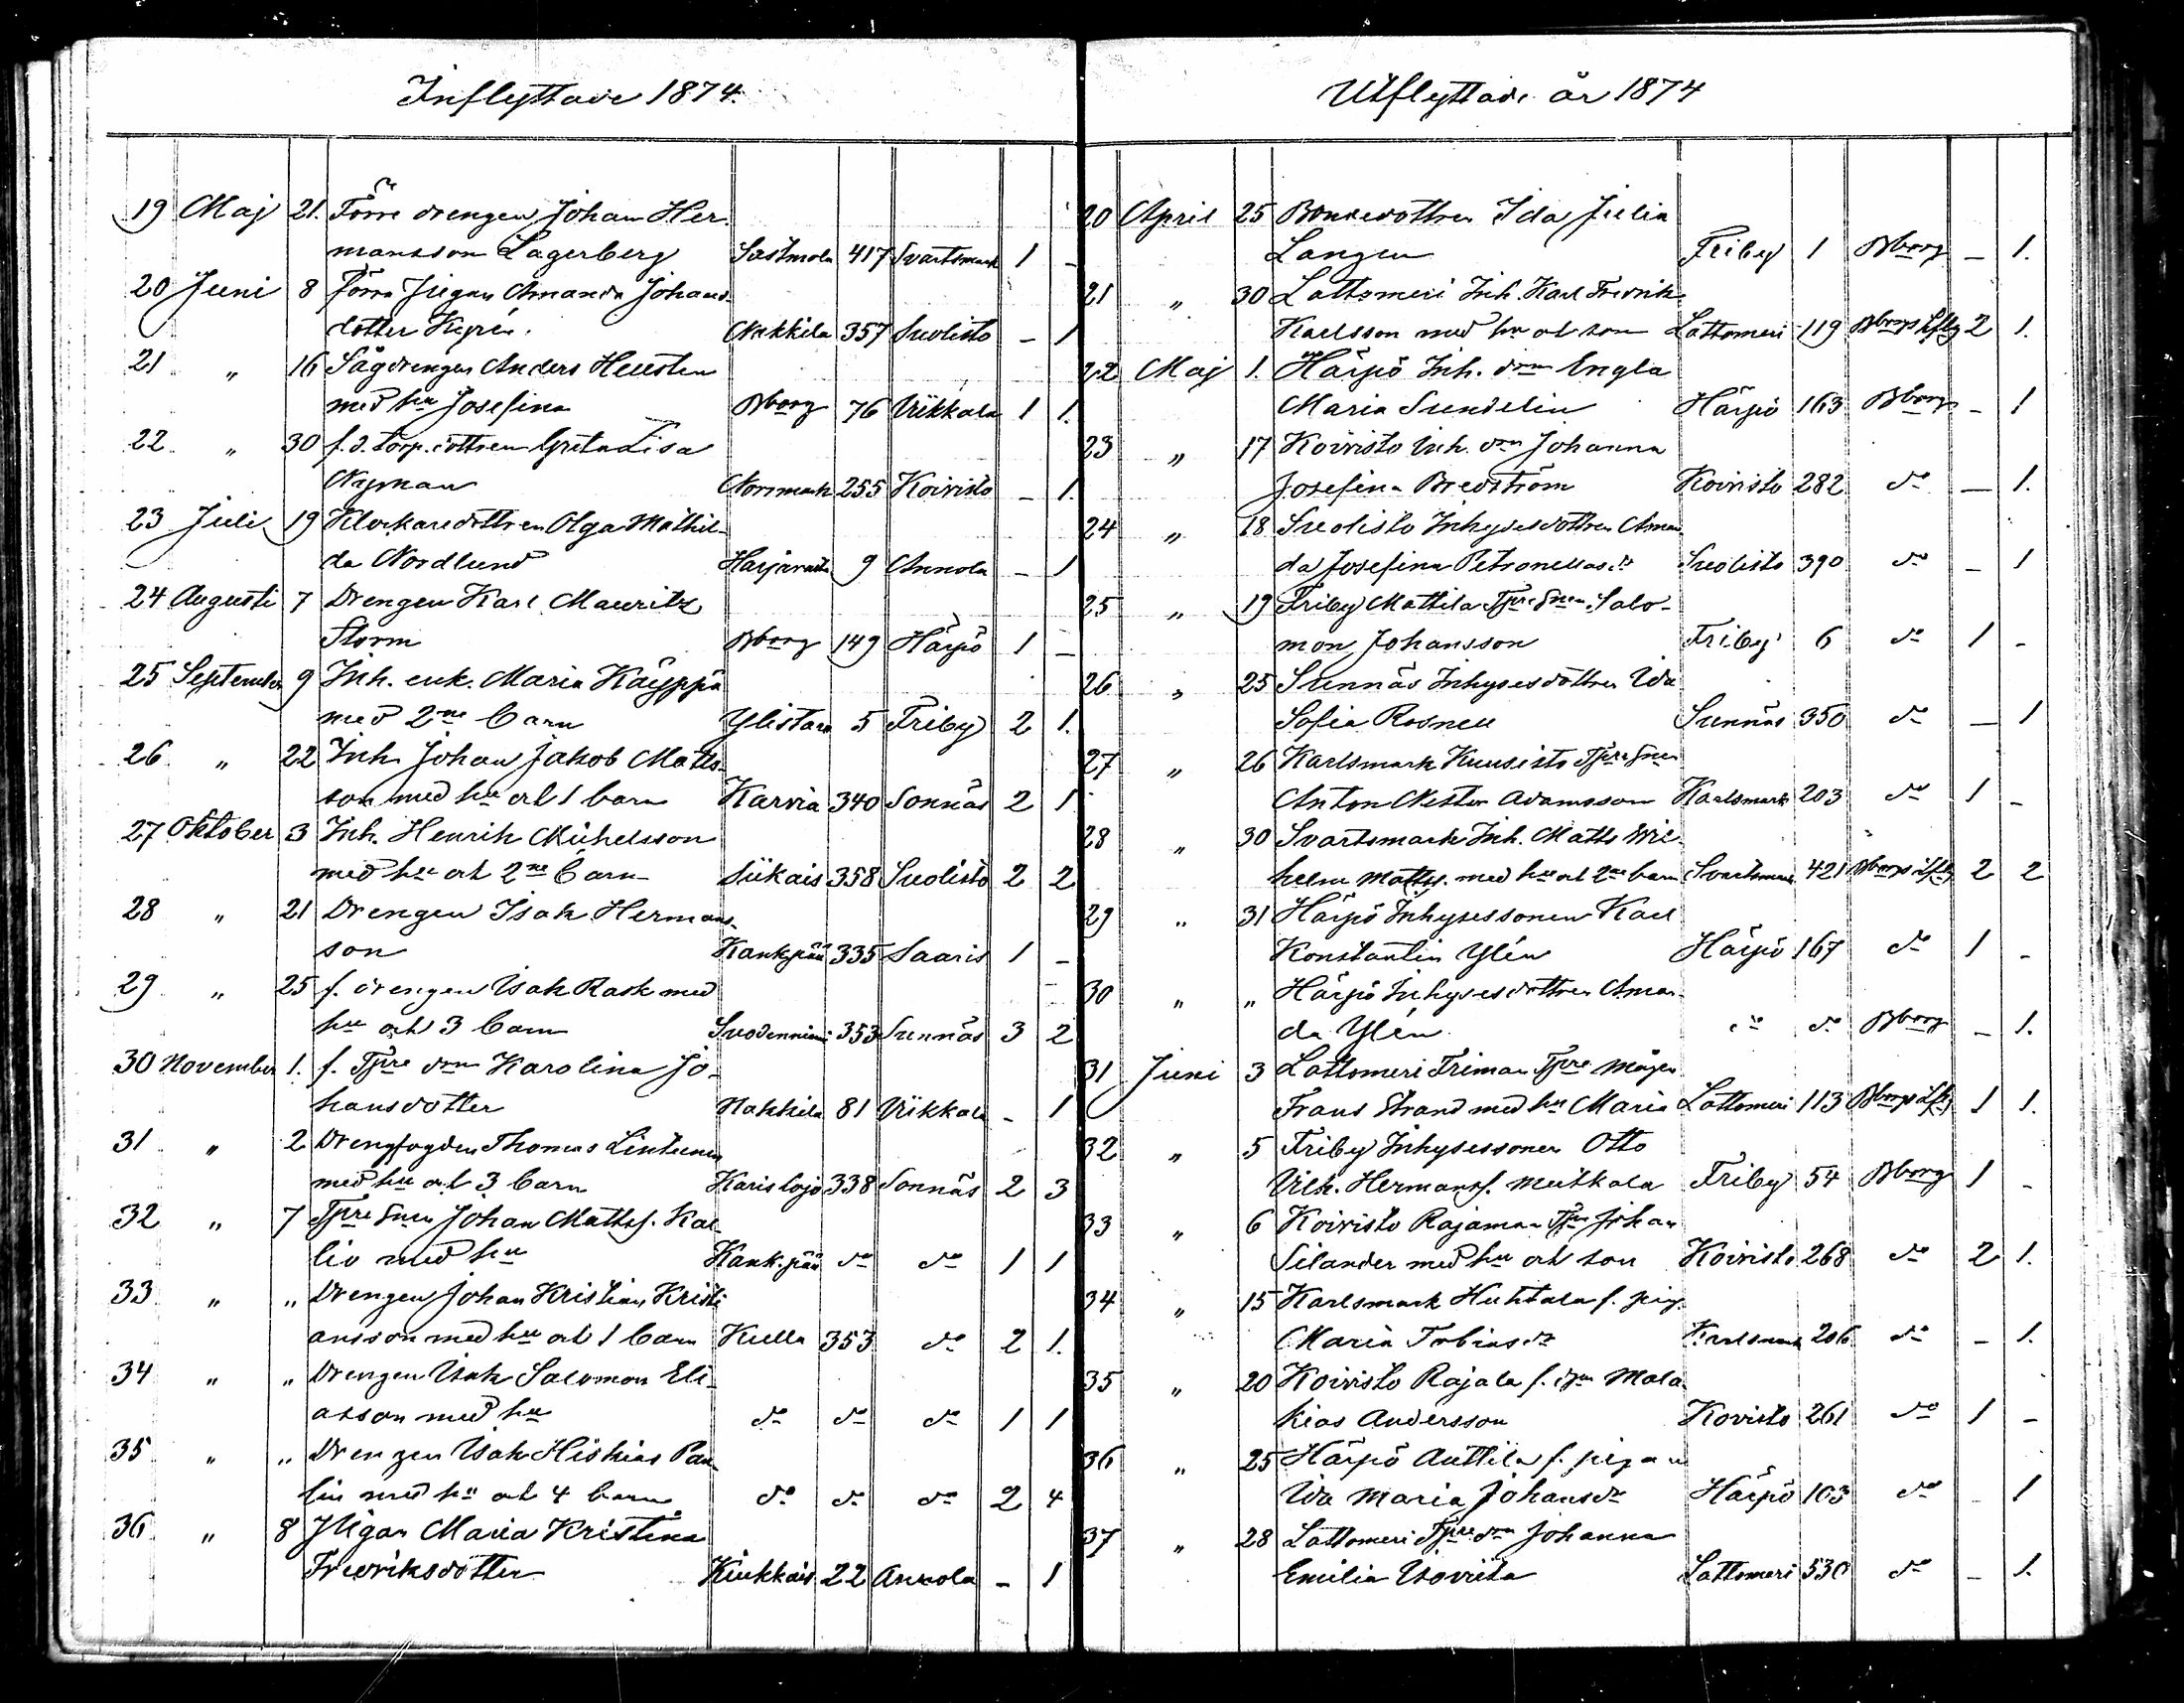 Inflyttade 1874.
19 Maj 21. Förre drengen Johan Her-
mansson Lagerberg Sastmola 417 Svartsmark 1 –
20 Juni 8 Förra Pigan Amanda Johans-
dotter Kyrén. Nakkila 357 Suolisto – 1
21 " 16 Sågdrengen Anders Hellsten
med hu Josefina Bborg 76 Vikkala 1 1.
22 " 30 f. d. torp. dottren Greta Lisa
Nyman Norrmark 255 Koivisto – 1.
23 Juli 19 Klockaredottren Olga Mathil-
da Nordlund Harjavalta 9 Annola – 1
24 Augusti 7 Drengen Karl Mauritz
Storm Bborg 149 Härpö 1 –
25 September 9 Inh. enk. Maria Käyppä
med 2ne barn Ylistaro 5 Friby 2 1.
26 " 22 Inh. Johan Jakob Matts-
son med hu och 1 barn Karvia 340 Sonnäs 2 1
27 Oktober 3 Inh. Henrik Michelsson
med hu och 2ne barn Siikais 358 Suolisto 2 2
28 " 21 Drengen Isak Hermans-
son Kankpää 335 Saaris 1 –
29 " 25 f. drengen Isak Rask med
hu och 3 barn Suodenniemi 353 Sunnäs 3 2
30 November 1. f. Tpre dn Karolina Jo-
hansdotter Nakkila 81 Vikkala – 1
31 " 2 Drengfogden Thomas Lintunen
med hu och 3 barn Karislojo 338 Sonnäs 2 3
32 " 7 Tpre Snen Johan Mattss. Kal-
lio med hu Kank.pää do do 1 1
33 " " Drengen Johan Kristian Kristi-
ansson med hu och 1 barn Kulla 353 do 2 1.
34 " " Drengen Isak Salomon Eli-
asson med hu do do do 1 1
35 " " Drengen Isak Hiskias Pau-
lin med hu och 4 barn do do do 2 4
36 " 8 Pigan Maria Kristina
Fredriksdotter Kiukkais 22 Annola – 1
Utflyttade år 1874
20 April 25 Bondedottren Ida Julia
Langen Friby 1 Bborg – 1.
21 " 30 Lattomeri Inh. Karl Fredrik
Karlsson med hu och son Lattomeri 119 Bborgs Lfg 2 1.
22 Maj 1. Härpö Inh. dn Engla
Maria Sundelin Härpö 163 Bborg – 1
23 " 17 Koivisto Inh. dn Johanna
Josefina Bredström Koivisto 282 do – 1.
24 " 18 Suolisto Inhysesdottren Aman-
da Josefina Petronellasdr Suolisto 390 do – 1
25 " 19 Friby Mattila Tpre Snen Salo-
mon Johansson Friby 6 do 1 –
26 " 25 Sunnäs Inhysesdottren Ida
Sofia Rosnell Sunnäs 350 do – 1
27 " 26 Karlsmark Kuusisto Tpre Snen
Anton Nestor Adamsson Karlsmark 203 do 1 –
28 " 30 Svartsmark Inh. Matts Wil-
helm Mattss. med hu och 2ne barn Svartsmark 421 Bborgs Lfg 2 2
29 " 31 Härpö Inhysessonen Karl
Konstantin Ylén Härpö 167 do 1 –
30 " " Härpö Inhysesdottren Aman-
da Ylén do do Bborg – 1.
31 Juni 3 Lattomeri Friman Tpre mågen
Frans Strand med hu Maria Lattomeri 113 Bborgs Lfg 1 1.
32 " 5 Friby Inhysessonen Otto
Vilh. Hermanss. Meikkala Friby 54 Bborg 1 –
33 " 6 Koivisto Rajaman Tpen Johan
Selander med hu och son Koivisto 268 do 2 1.
34 " 15 Karlsmark Huhtala f. pig.
Maria Tobiasdr Karlsmark 206 do – 1.
35 " 20 Koivisto Rajala f. dgn Mala-
kias Andersson Kovisto 261 do 1 –
36 " 25 Härpö Anttila f. pigan
Ida Maria Johansdr Härpö 103 do – 1
37 " 28 Lattomeri Tpre dn Johanna
Emilia Isovita Lattomeri 530 do – 1.